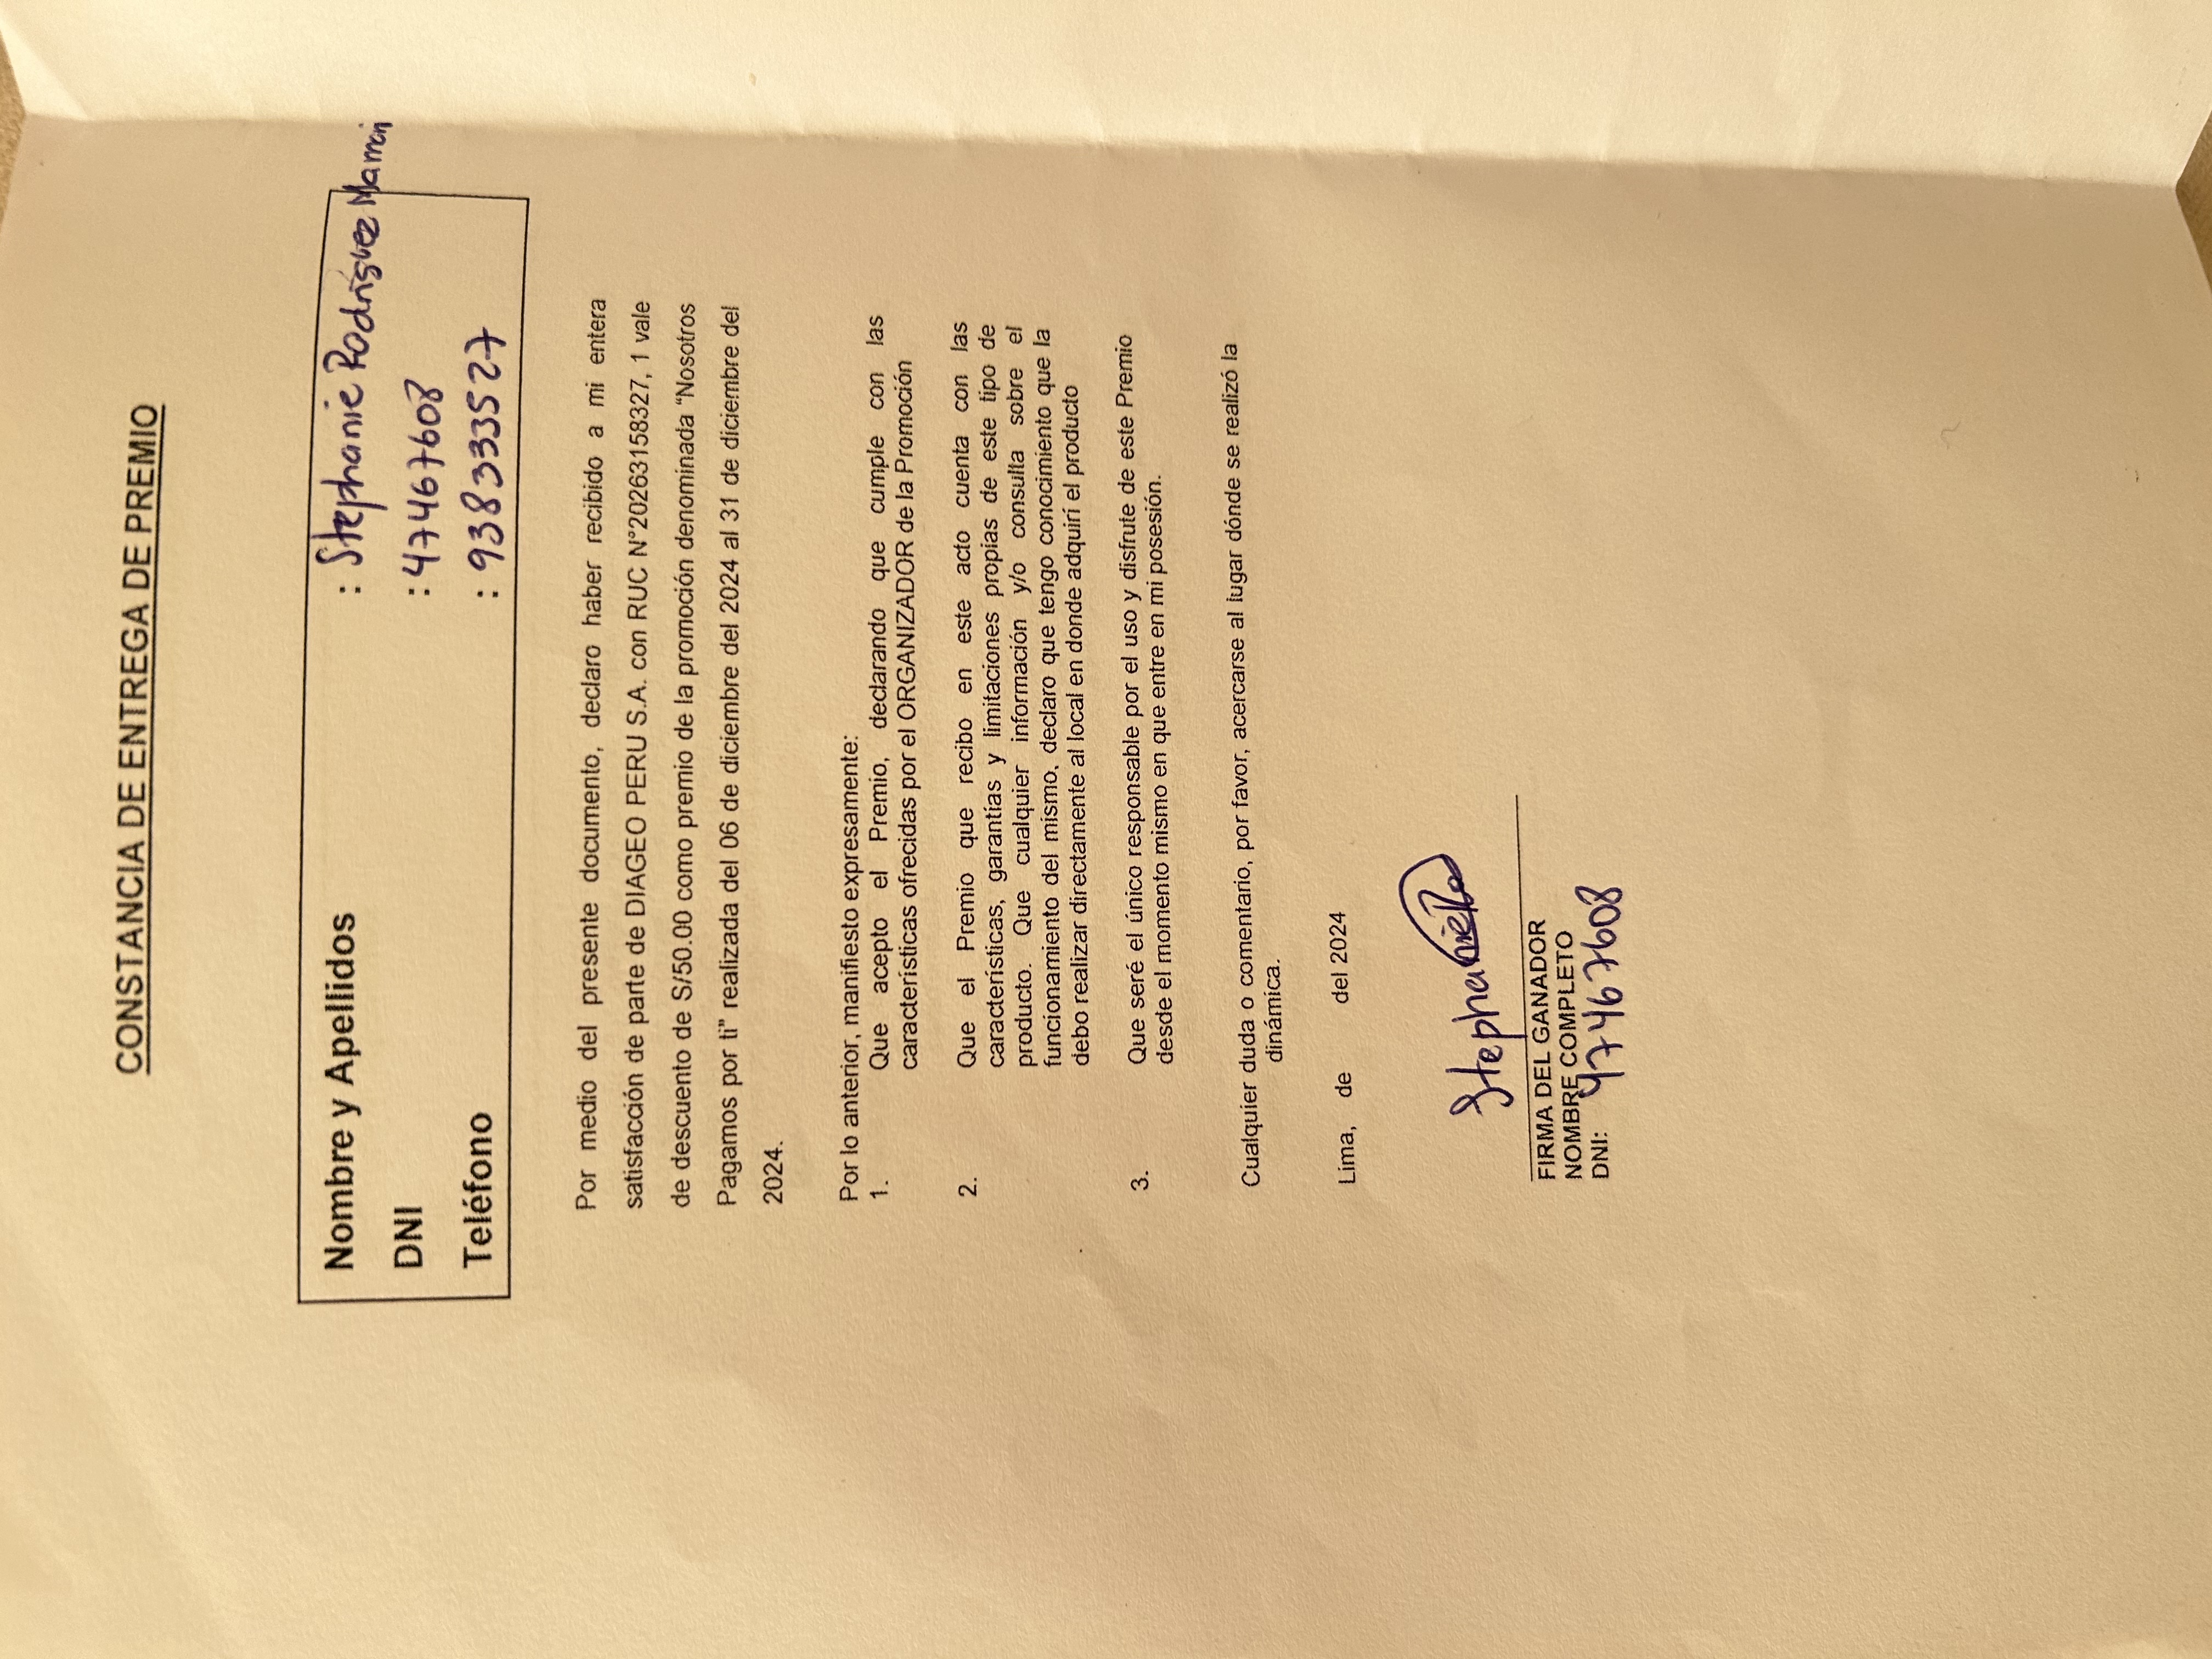 CONSTANCIA DE ENTREGA DE PREMIO
Nombre y Apellidos : Stephanie Rodríguez
DNI : 47467608
Teléfono : 938333527
Por medio del presente documento, declaro haber recibido a mi entera
satisfacción de parte de DIAGEO PERU S.A. con RUC N°20263158327, 1 vale
de descuento de S/50.00 como premio de la promoción denominada “Nosotros
Pagamos por ti” realizada del 06 de diciembre del 2024 al 31 de diciembre del
2024.
Por lo anterior, manifiesto expresamente:
1. Que acepto el Premio, declarando que cumple con las
características ofrecidas por el ORGANIZADOR de la Promoción
2. Que el Premio que recibo en este acto cuenta con las
características, garantías y limitaciones propias de este tipo de
producto. Que cualquier información y/o consulta sobre el
funcionamiento del mismo, declaro que tengo conocimiento que la
debo realizar directamente al local en donde adquirí el producto
3. Que seré el único responsable por el uso y disfrute de este Premio
desde el momento mismo en que entre en mi posesión.
Cualquier duda o comentario, por favor, acercarse al lugar dónde se realizó la
dinámica.
Lima, de del 2024
StephanieRo
FIRMA DEL GANADOR
NOMBRE COMPLETO
DNI: 47467608